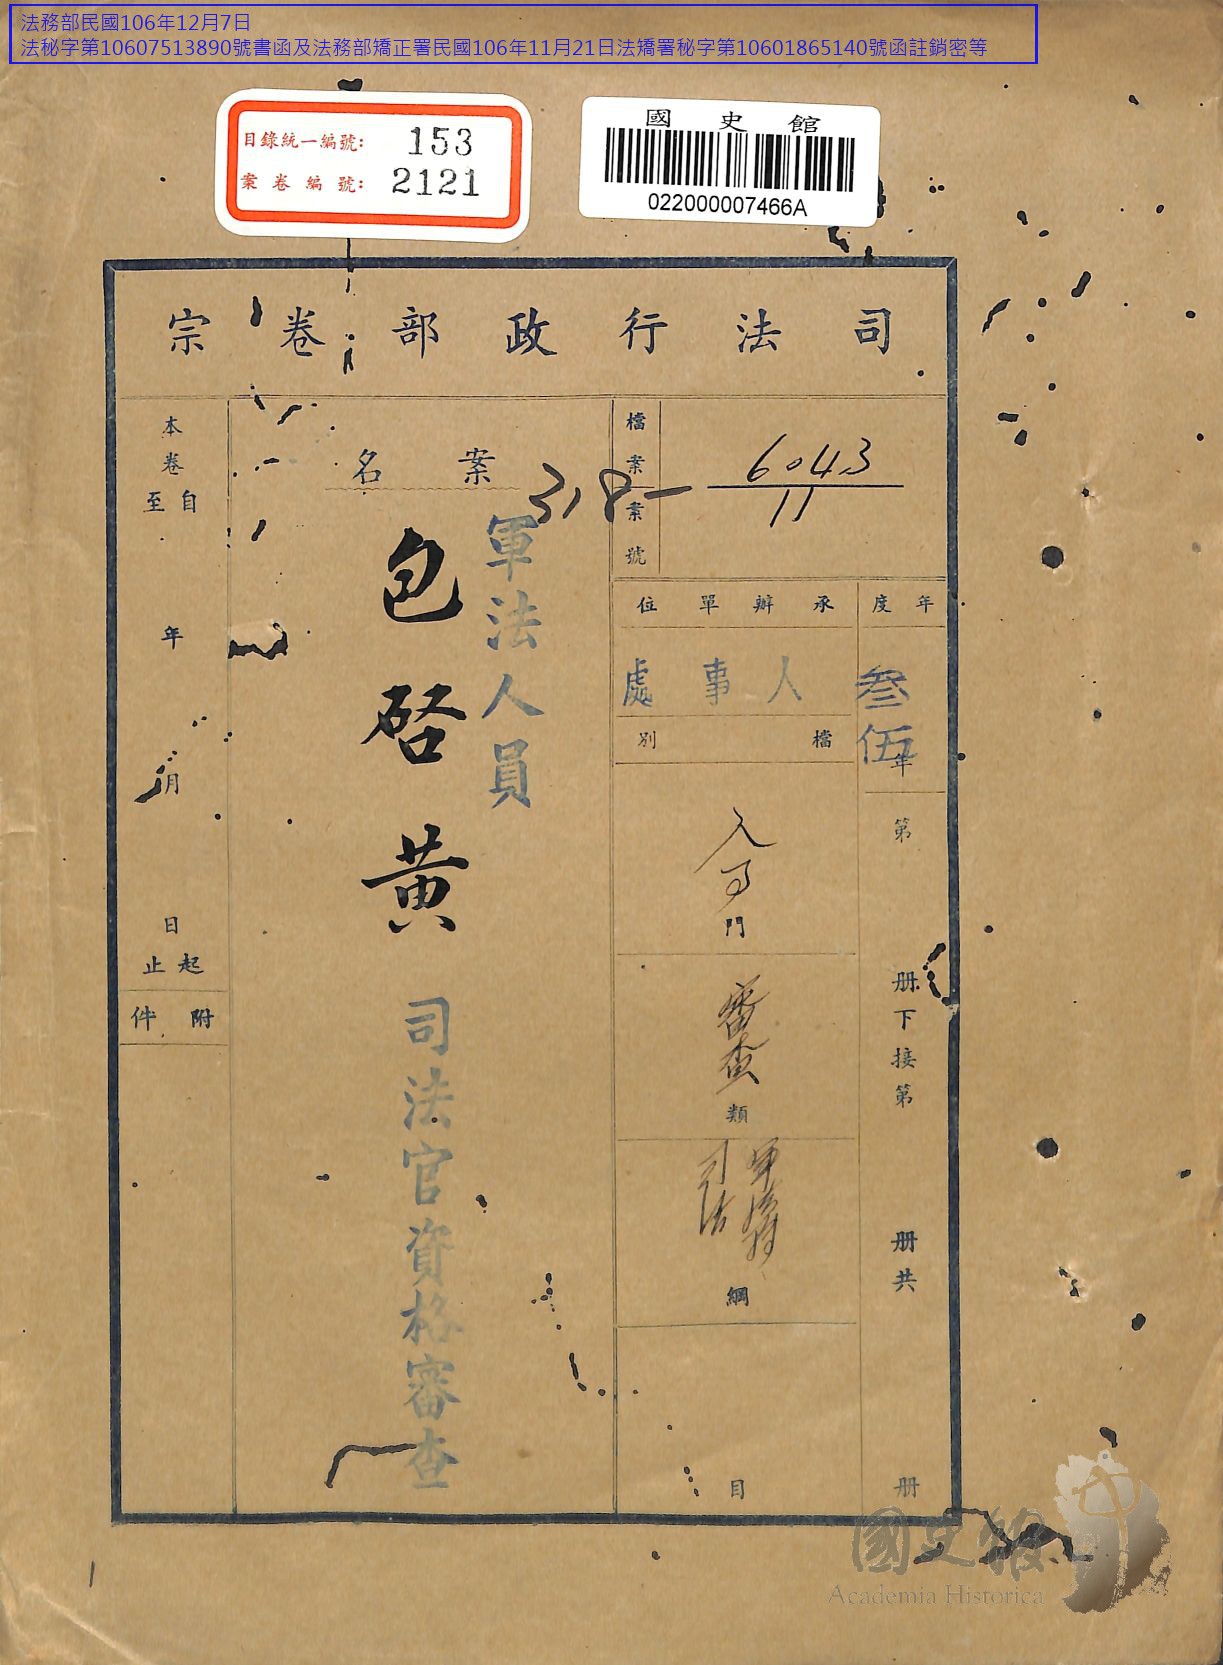 法務部民國106年12月7日
法秘字第10607513890號書函及法務部矯正署民國106年11月21日法矯署秘字第10601865140號函註銷密等
目錄統一編號: 153
案卷編號: 2121
國史館
022000007466A
司法行政部卷宗
檔案案號
318-6043/11
年度
叁伍年
第
册下接第
册共
册
承辦單位
人事處
檔別
人事門
審查類
司法
綱
目
案名
軍法人員
包啓黃
司法官資格審查
本卷
自至
年
月
日
起止
附件
1
國史館
Academia Historica